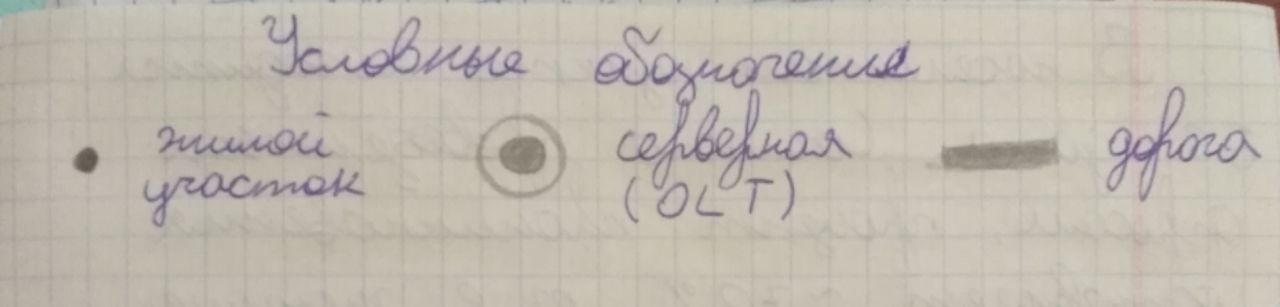 Условные обозначения
жилой участок
серверная (OLT)
дорога